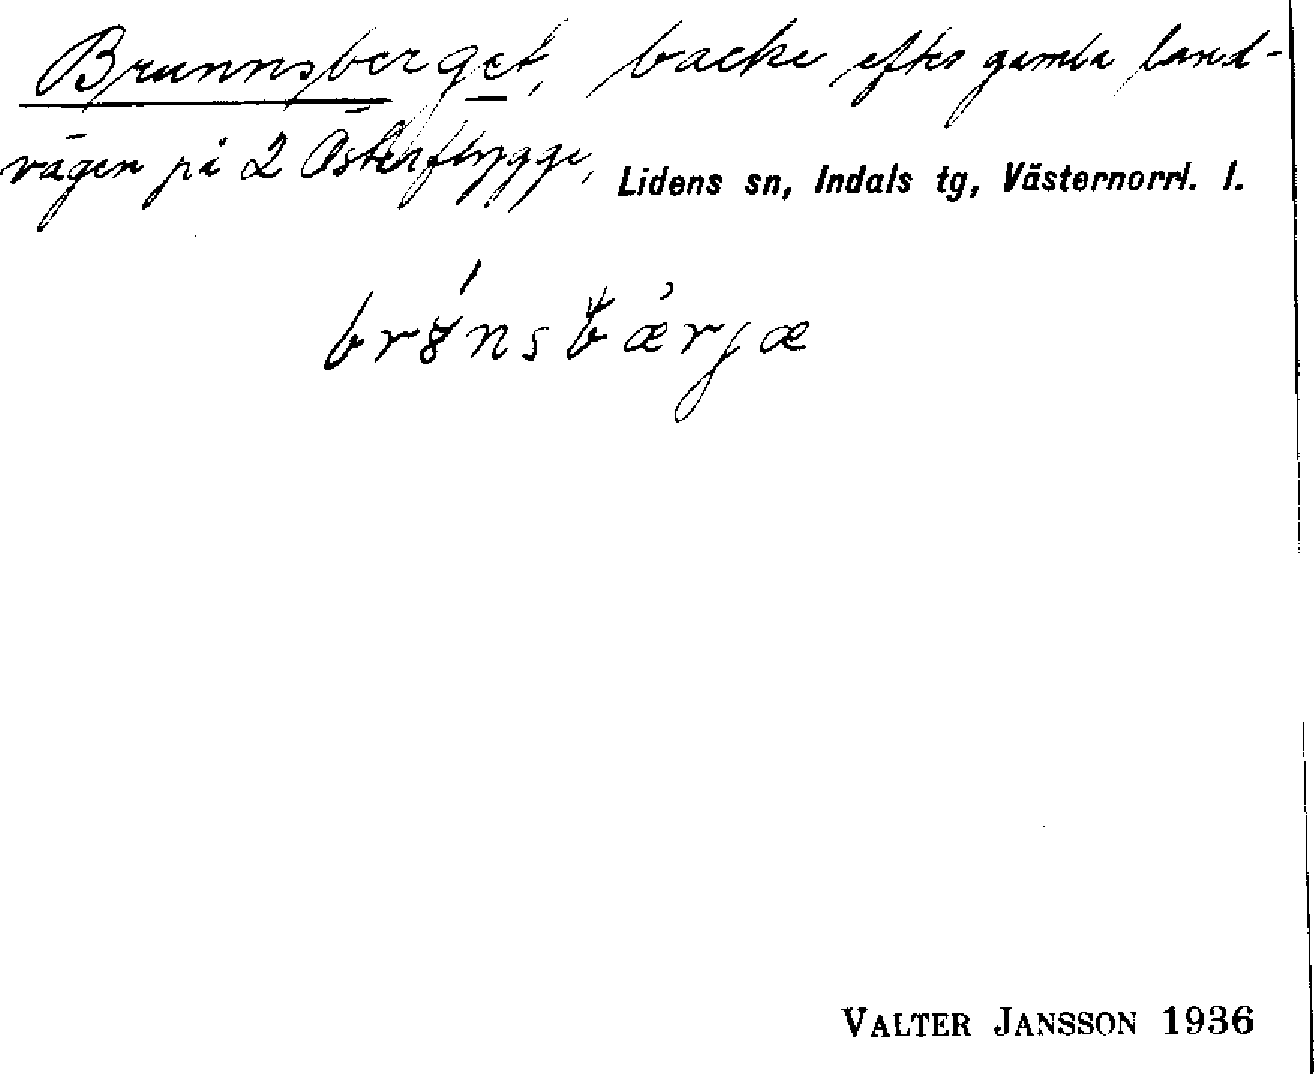 Brunnsberget, backe efter gamla land-
vägen på 2 Österflygge, Lidens sn, Indals tg, Västernorrl. l.
VALTER JANSSON 1936